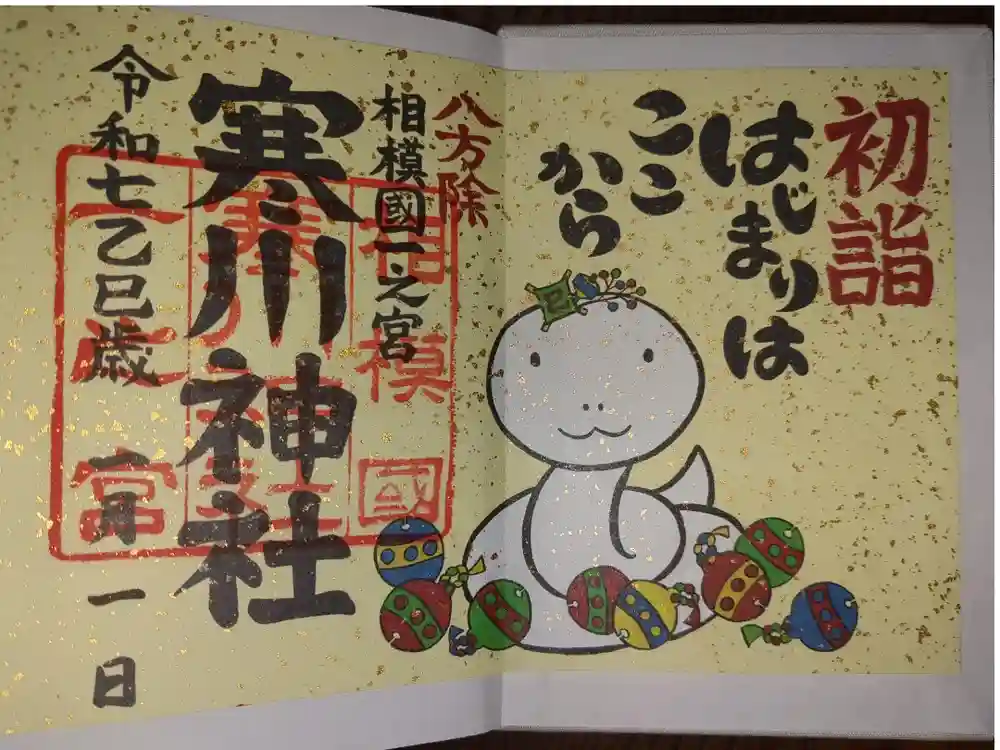 初詣
はじまりは
ここ
から
八方除
相模國一之宮
寒川神社
令和七乙巳歳 一月 一日
相模國
寒川神社
一之宮
巳